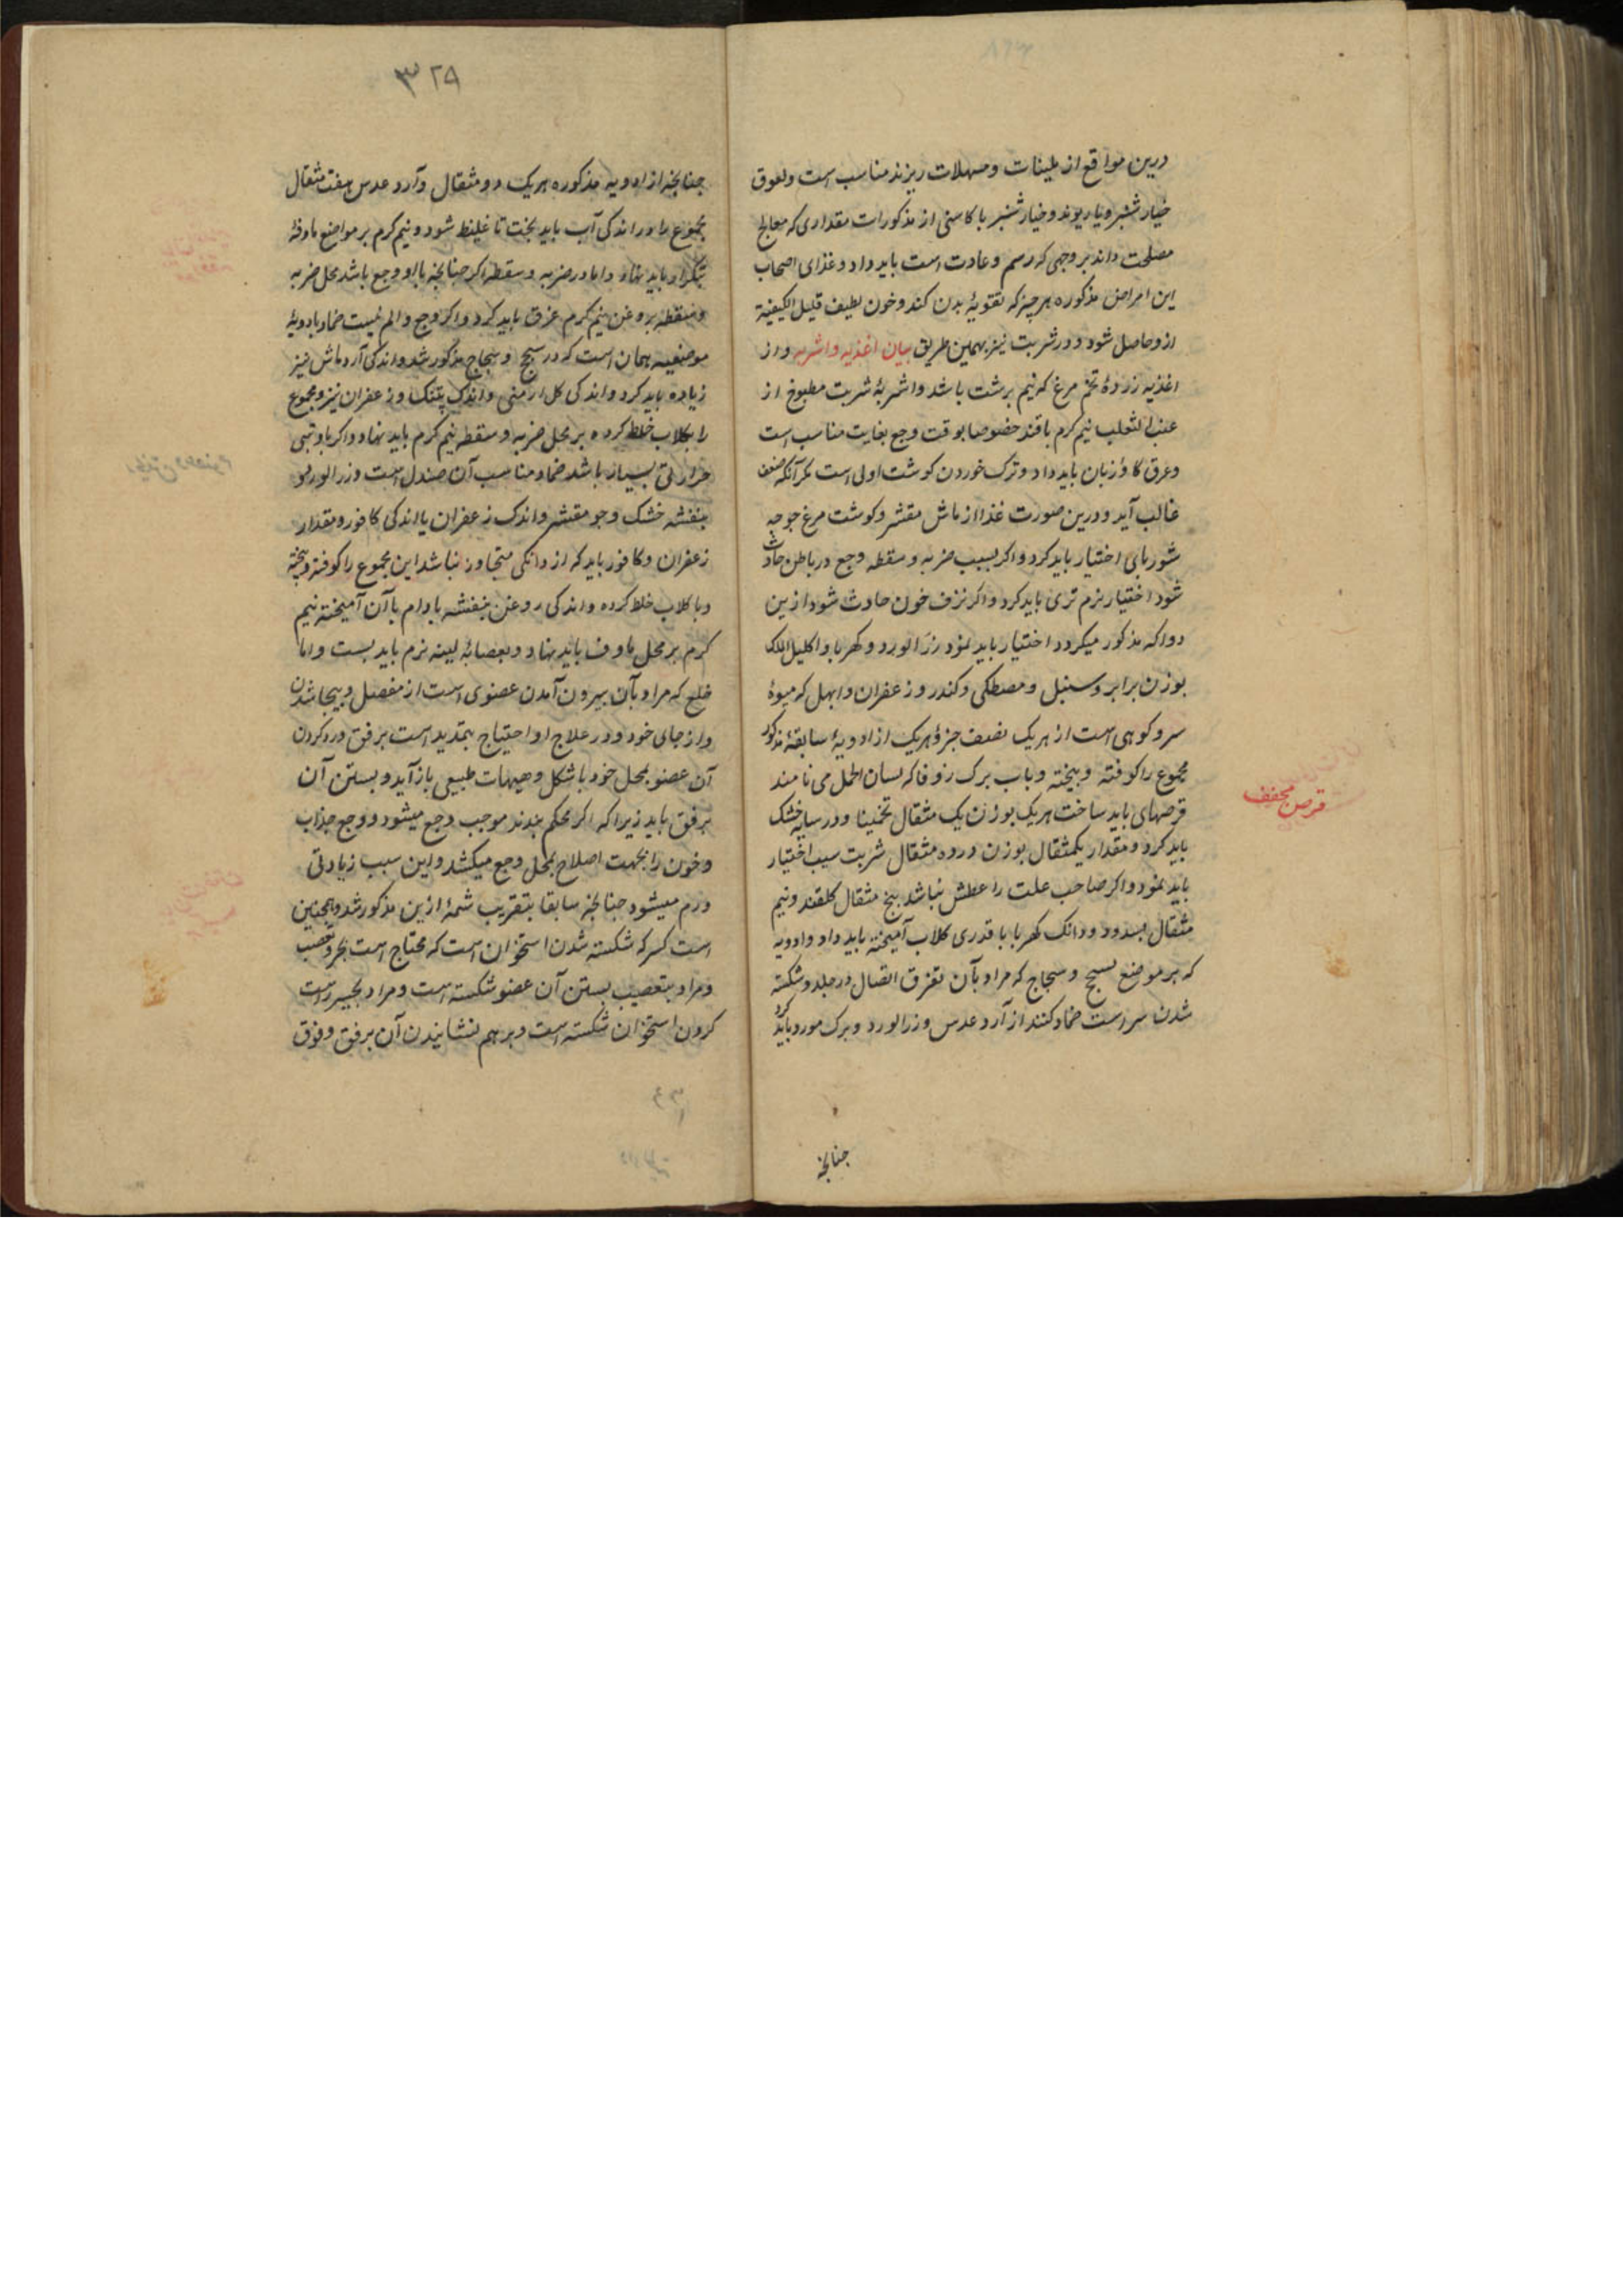 درین مواقع از ملینات و مسهلات ریزند مناسب است و لعوق
خیار شنبر و یا ریوند و خیار شنبر با کاسنی از مذکورات مقداری که معالج
مصلحت داند بر وجهی که رسم و عادت است باید داد و غذای اصحاب
این امراض مذکوره هر چیز که تقویهٔ بدن کند و خون لطیف قلیل الکیفیة
ازو حاصل شود و در شربت نیز بهمین طریق بیان اغذیه و اشربه و از
اغذیه زردهٔ تخم مرغ که نیم برشت باشد و اشربهٔ شربت مطبوخ از
عنب الثعلب نیم کرم با قند خصوصا بوقت وجع بغایت مناسب است
و عرق کاو زبان باید داد و ترک خوردن کوشت اولی است مکر آنکه ضعف
غالب آید و درین صورت غذا از ماش مقشر و کوشت مرغ جوجه
شوربای اختیار باید کرد و اکر بسبب ضربه و سقطه وجع در باطن حادث
شود اختیار بزم تری باید کرد و اکر نزف خون حادث شود ازین
دوا که مذکور میکردد اختیار باید نمود زر الورد و کهربا و اکلیل الملک
بوزن برابر و سنبل و مصطکی و کندر و زعفران و ابهل که میوهٔ
سرو کوهی است از هر یک نصف جزؤ هر یک از ادویهٔ سابقهٔ مذکور
مجموع را کوفته و بیخته و باب برک زوفا که لسان الحمل می نامند
قرصهای باید ساخت هر یک بوزن یک مثقال تخمینا و در سایه خشک
باید کرد و مقدار یکمثقال بوزن در وه مثقال شربت سیب اختیار
باید نمود و اکر صاحب علت را عطش نباشد پنج مثقال کلقند و نیم
مثقال بسد و دو دانک کهربا با قدری کلاب آمیخته باید داد و ادویه
که بر موضع سبح و سجاج که مراد بآن تفرق اتصال در جلد و شکسته
شدن سر است ضماد کنند از آرد عدس و زر الورد و برک مورد باید کرد
قرص مجفف
جنانجه
۳۲۹
جنانجه از ادویه مذکوره هر یک دو مثقال و آرد عدس هفت مثقال
مجموع را در اندکی آب باید پخت تا غلیظ شود و نیم کرم بر مواضع ماوفه
بتکرار باید نهاد و اما در ضربه و سقطه اکر جنانجه با او وجع باشد محل ضربه
و سقطه بروغن نیم کرم عرق باید کرد و اکر وجع و الم نیست ضماد با دویهٔ
موضعیه همان است که در سبح و سجاج مذکور شد و اندکی آرد ماش نیز
زیاده باید کرد و اندکی کل ارمنی و اندک پتنک و زعفران نیز و مجموع
را بکلاب خلط کرده بر محل ضربه و سقطه نیم کرم باید نهاد و اکر با او تبی
حرارتی بسیار باشد ضماد مناسب آن صندل است و زر الورد و
بنفشه خشک و جو مقشر و اندک زعفران یا اندکی کافور و مقدار
زعفران و کافور باید که از دانکی متجاوز نباشد این مجموع را کوفته و بیخته
و با کلاب خلط کرده و اندکی روغن بنفشه بادام با آن آمیخته نیم
کرم بر محل ماوف باید نهاد و بعصابهٔ لینه نرم باید بست و اما
خلع که مراد بآن بیرون آمدن عضوی است از مفصل و بیجا شدن
و از جای خود و در علاج او احتیاج بتمدید است برفق و رد کردن
آن عضو بمحل خود با شکل و هیهات طبیعی باز آید و بستن آن
برفق باید زیرا که اکر محکم بندند موجب وجع میشود و وجع جذاب
و خون را بجهت اصلاح بمحل وجع میکشد و این سبب زیادتی
ورم میشود جنانجه سابقا بتقریب شمهٔ ازین مذکور شد و همچنین
است کسر که شکسته شدن استخوان است که محتاج است بجبر و تعصیب
و مراد بتعصیب بستن آن عضو شکسته است و مراد بجبیر راست
کردن استخوان شکسته است و بر هم نشانیدن آن برفق و فوق